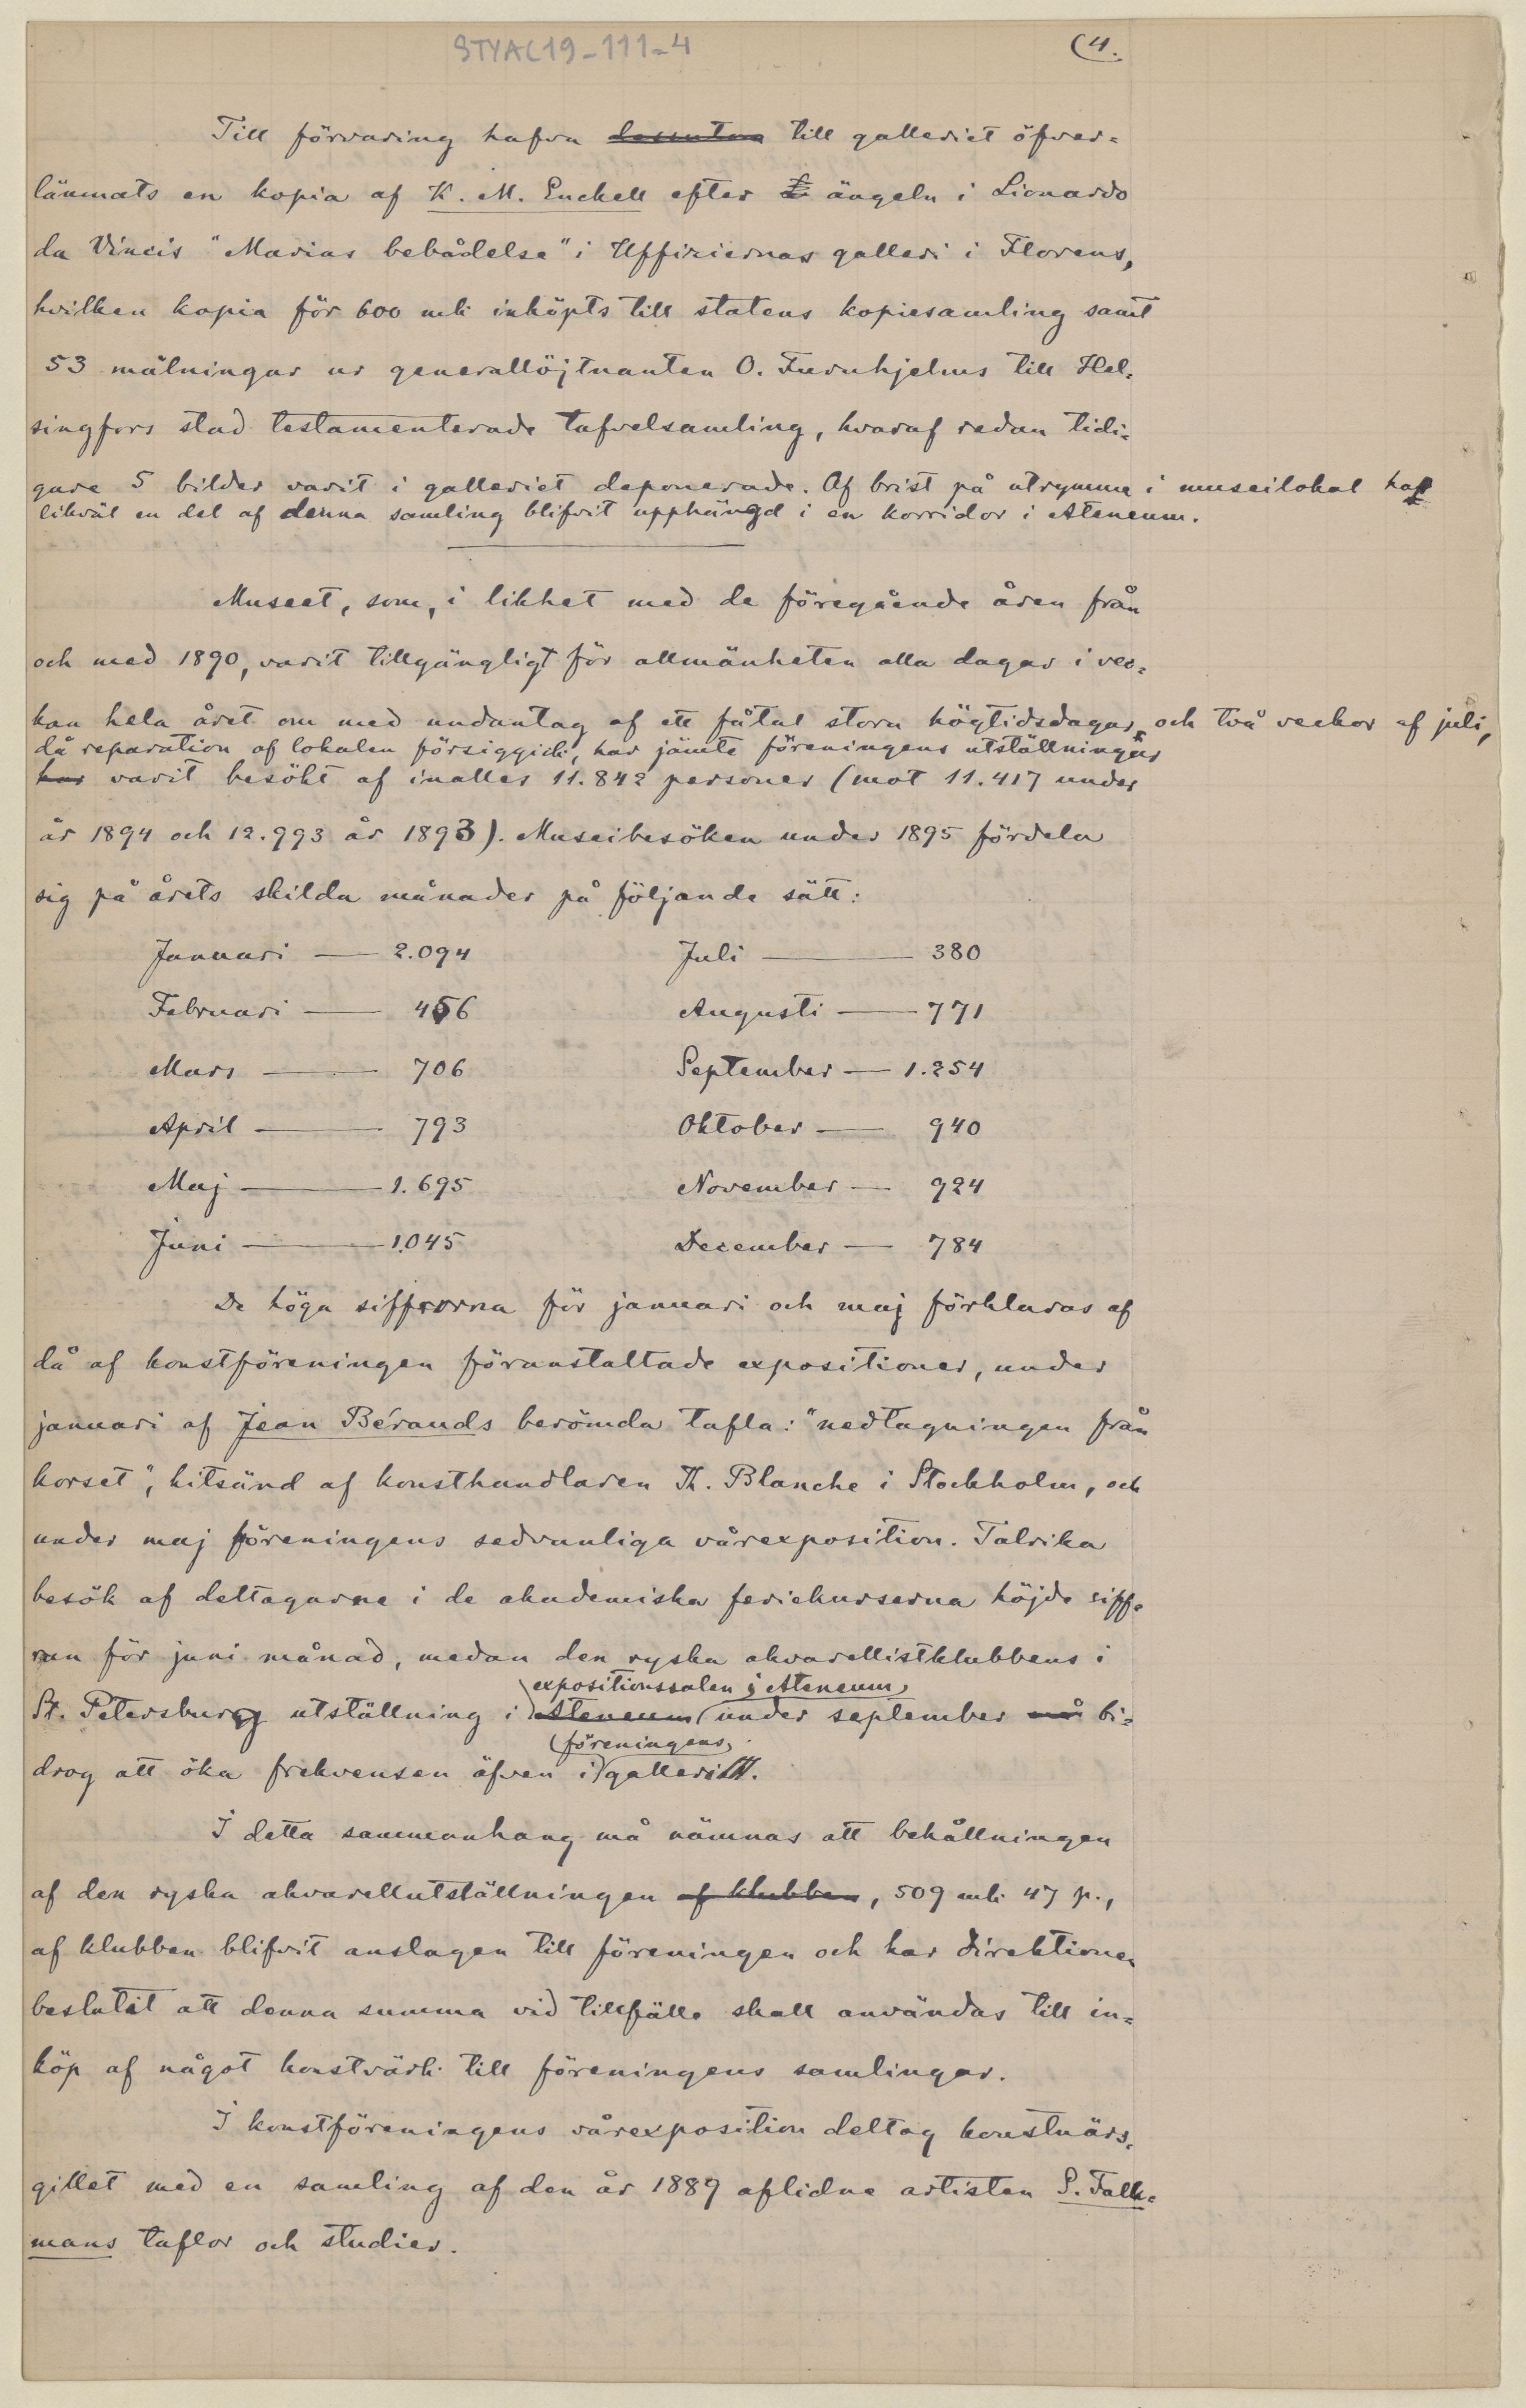 STYA C19-111-4
(4.
Till förvaring hafva dessutom till galleriet öfver=
lämnats en kopia af K. M. Enckell efter ängeln i Lionardo
da Vincis "Marias bebådelse" i Uffiziernas galleri i Florens,
hvilken kopia för 600 mk inköpts till statens kopiesamling samt
53 målningar ur generallöjtnanten O. Furuhjelms till Hel=
singfors stad testamenterade tafvelsamling, hvaraf redan tidi=
gare 5 bilder varit i galleriet deponerade. Af brist på utrymme i museilokal har
likväl en del af denna samling blifvit upphängd i en korridor i Ateneum.
Museet, som, i likhet med de föregående åren från
och med 1890, varit tillgängligt för allmänheten alla dagar i vec=
kan hela året om med undantag af ett fåtal stora högtidsdagar och två veckor af juli,
då reparation af lokalen försiggick, har jämte föreningens utställningar
har varit besökt af inalles 11.842 personer (mot 11.417 under
år 1894 och 12.993 år 1893). Museibesöken under 1895 fördela
sig på årets skilda månader på följande sätt:
Januari — 2.094 Juli — 380
Februari — 456 Augusti — 771
Mars — 706 September — 1.254
April — 793 Oktober — 940
Maj — 1.695 November — 924
Juni — 1.045 December — 784
De höga siffrorna för januari och maj förklaras af
då af konstföreningen föranstaltade expositioner, under
januari af Jean Bérauds berömda tafla: "nedtagningen från
korset", hitsänd af konsthandlaren Th. Blanche i Stockholm, och
under maj föreningens sedvanliga vårexposition. Talrika
besök af deltagarne i de akademiska feriekurserna höjde siff=
ran för juni månad, medan den ryska akvarellistklubbens i
expositionssalen i Ateneum
St. Petersburg utställning i Ateneum under september bi=
föreningens
drog att öka frekvensen äfven i galleri.
I detta sammanhang må nämnas att behållningen
af den ryska akvarellutställningen af klubben, 509 mk 47 p.,
af klubben blifvit anslagen till föreningen och har direktionen
beslutit att denna summa vid tillfälle skall användas till in=
köp af något konstvärk till föreningens samlingar.
I konstföreningens vårexposition deltog konstnärs=
gillet med en samling af den år 1889 aflidne artisten S. Falk=
mans taflor och studier.